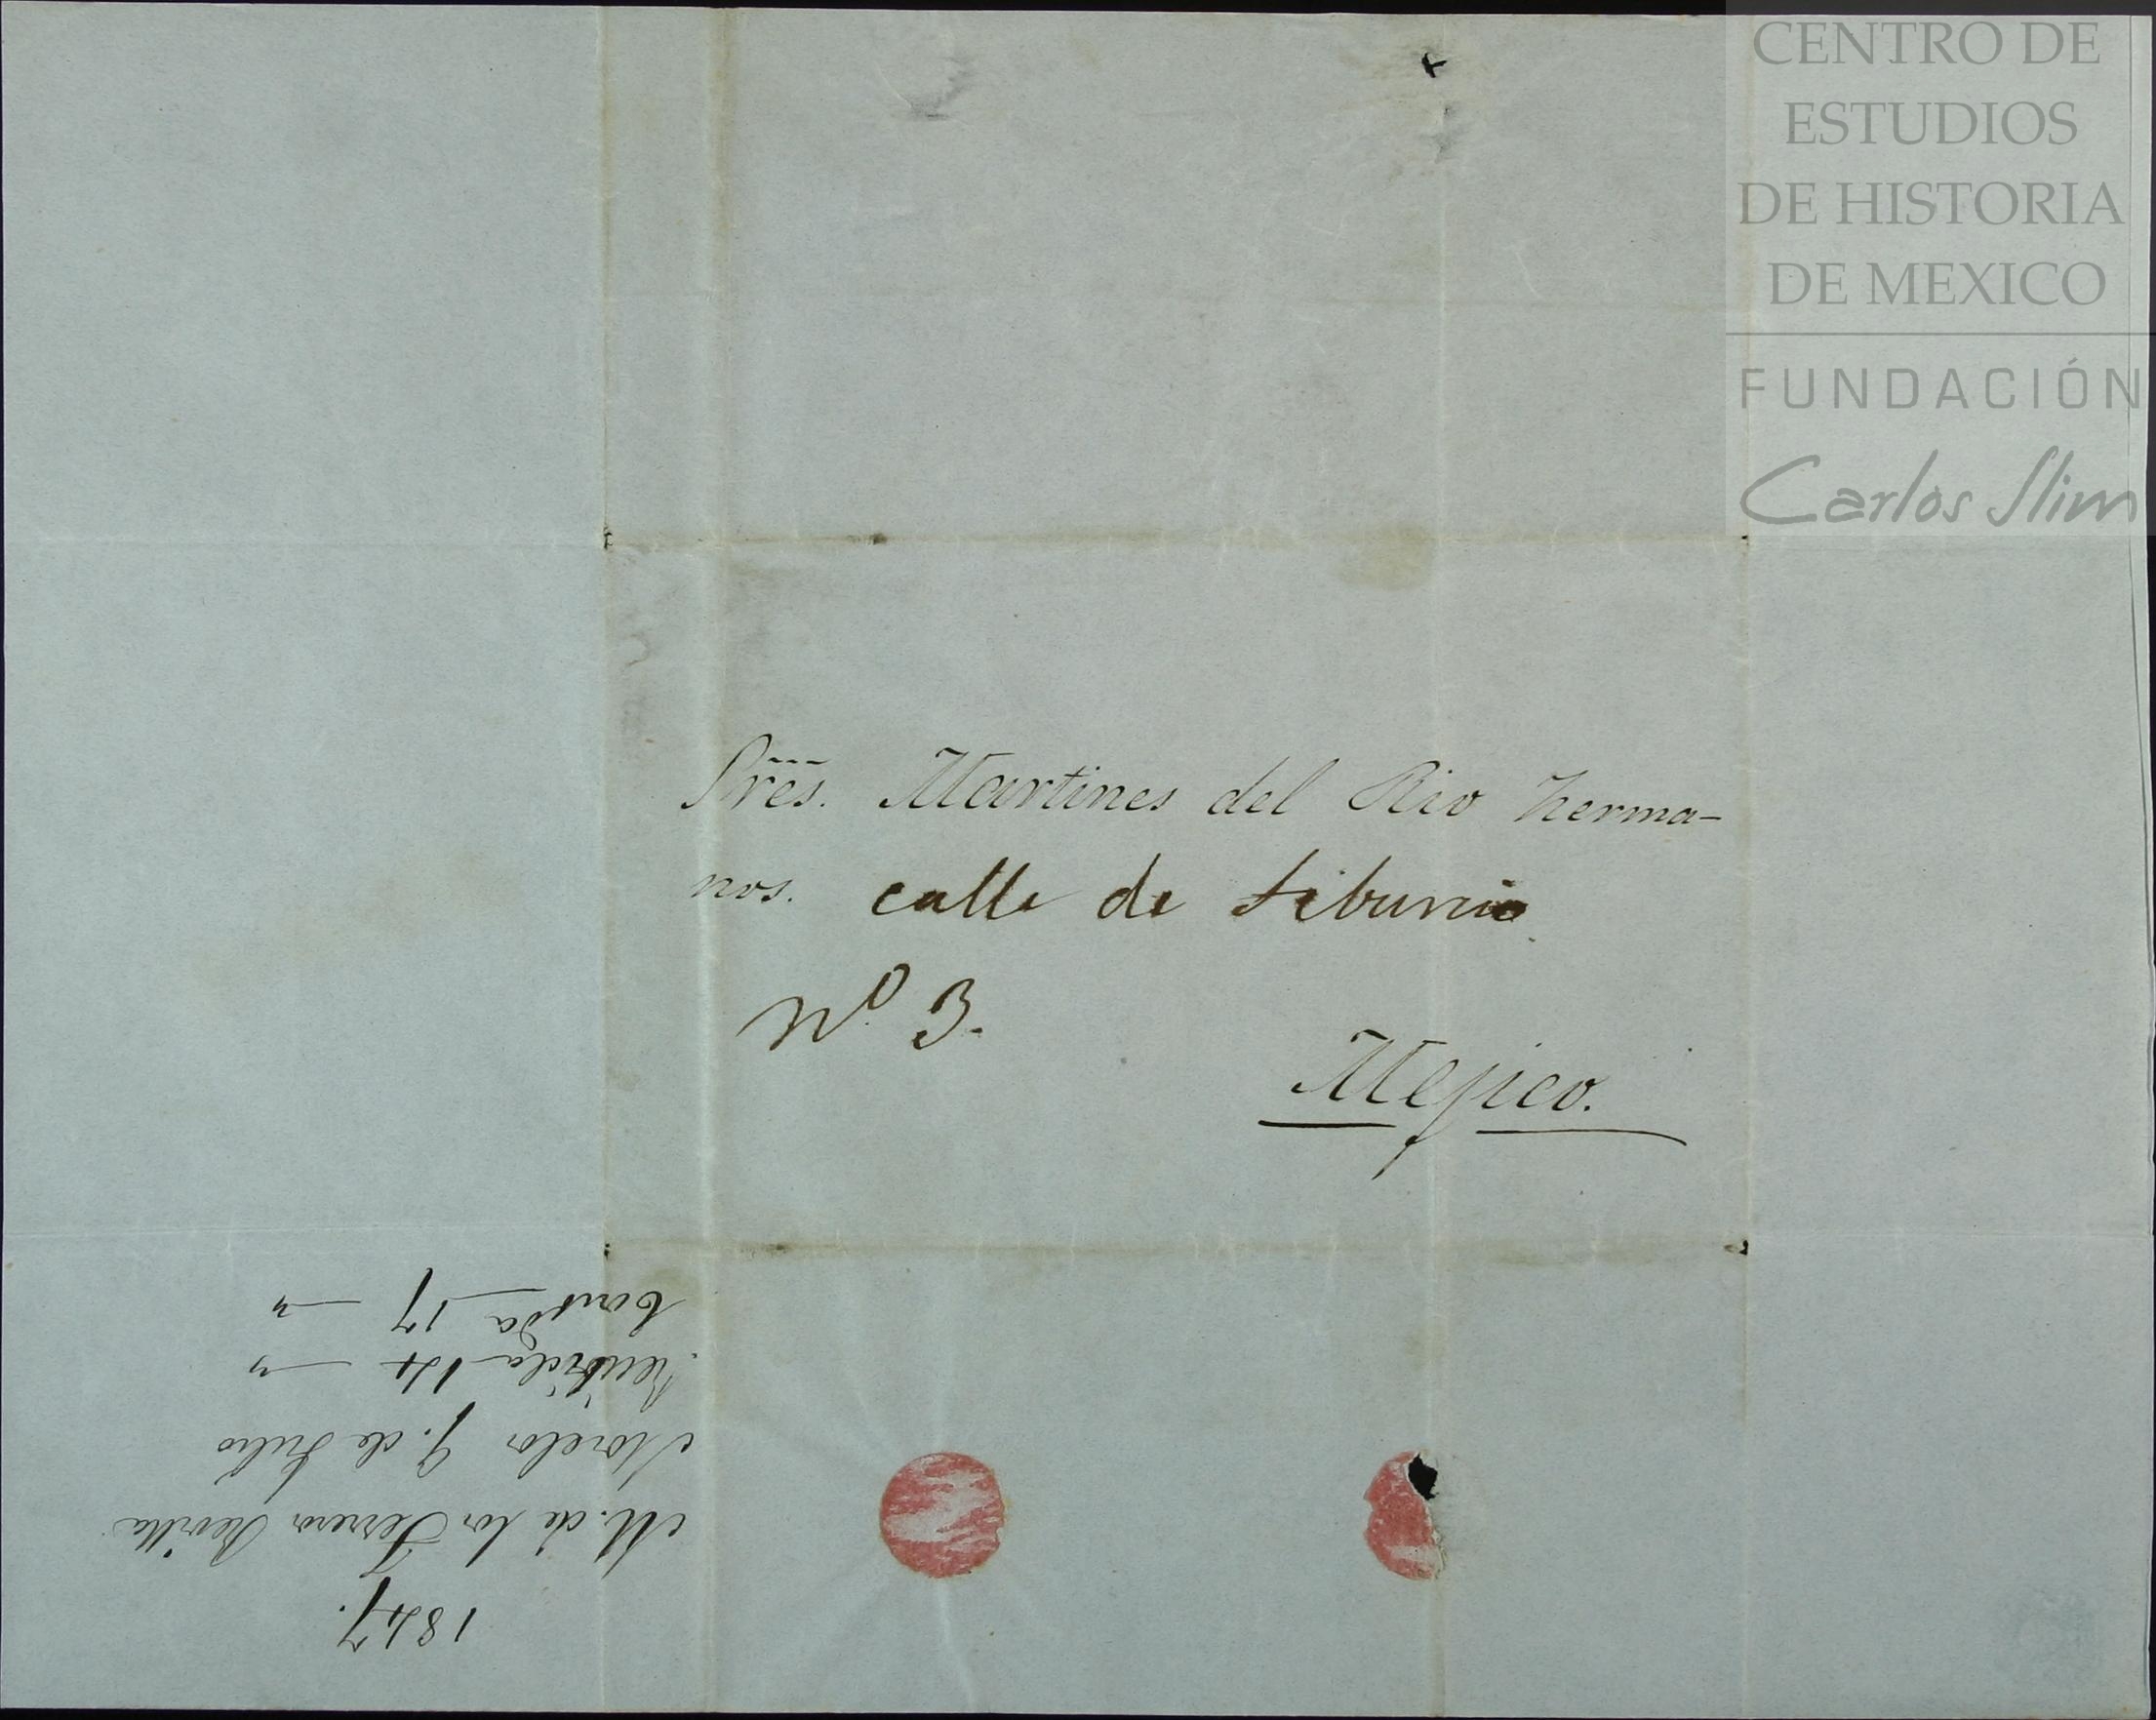 CENTRO DE
ESTUDIOS
DE HISTORIA
DE MEXICO
FUNDACIÓN
Carlos Slim
Sres. Martines del Rio herma-
nos. calle de tiburcio
Nº 3.
Mejico.
1847.
M. de los Terreros Revilla
Morelos 9. de Julio
Recibida 14 — "
Contda 17 — "